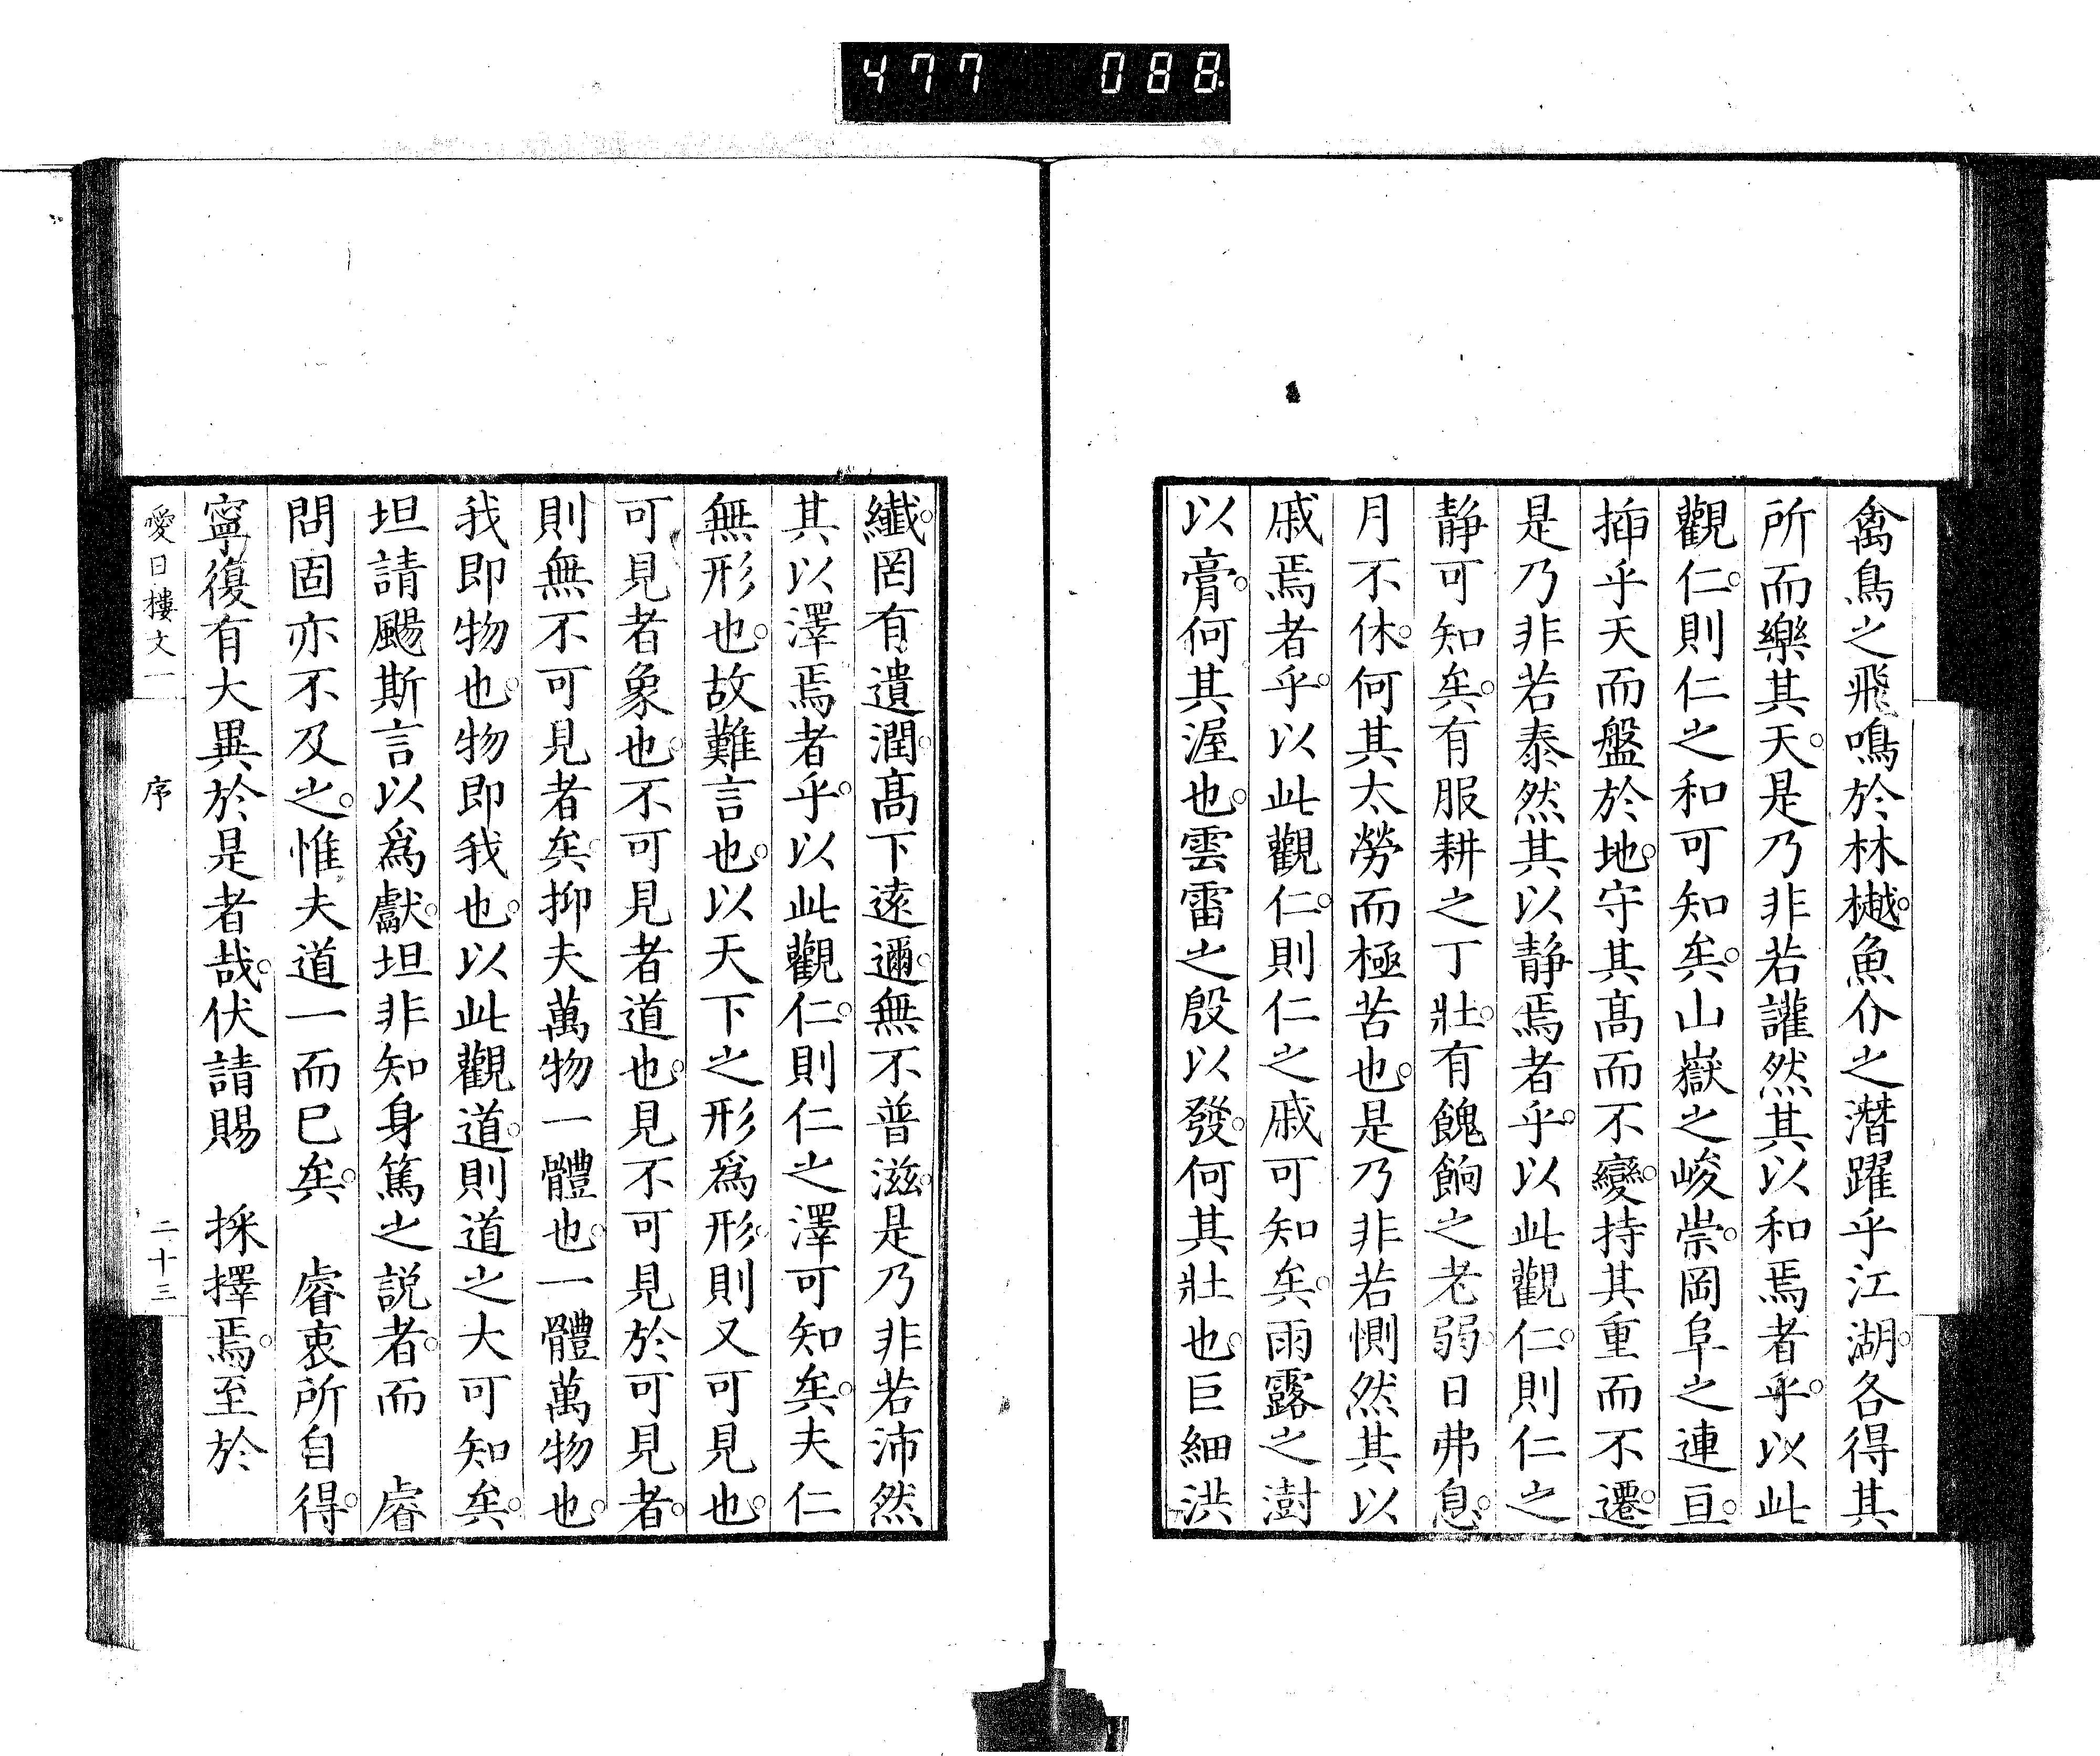 477 088
禽鳥之飛鳴於林樾。魚介之潛躍乎江湖。各得其
所而樂其天。是乃非若讙然其以和焉者乎。以此
觀仁。則仁之和可知矣。山嶽之峻崇。岡阜之連亘。
揷乎天而盤於地。守其髙而不變。持其重而不遷。
是乃非若泰然其以静焉者乎。以此觀仁。則仁之
静可知矣。有服耕之丁壯。有餽餉之老弱。日弗息。
月不休。何其太勞而極苦也。是乃非若惻然其以
戚焉者乎。以此觀仁。則仁之戚可知矣。雨露之澍
以膏。何其渥也。雲雷之殷以發。何其壯也。巨細洪
纖。罔有遺潤。髙下遠邇。無不普滋。是乃非若沛然
其以澤焉者乎。以此觀仁。則仁之澤可知矣。夫仁
無形也。故難言也。以天下之形爲形。則又可見也。
可見者象也。不可見者道也。見不可見於可見者。
則無不可見者矣。抑夫萬物一體也。一體萬物也。
我即物也。物即我也。以此觀道。則道之大可知矣。
坦請颺斯言以爲獻。坦非知身篤之説者。而　睿
問固亦不及之。惟夫道一而已矣。　睿衷所自得。
寧復有大異於是者哉。伏請賜　採擇焉。至於
愛日樓文一　序　二十三